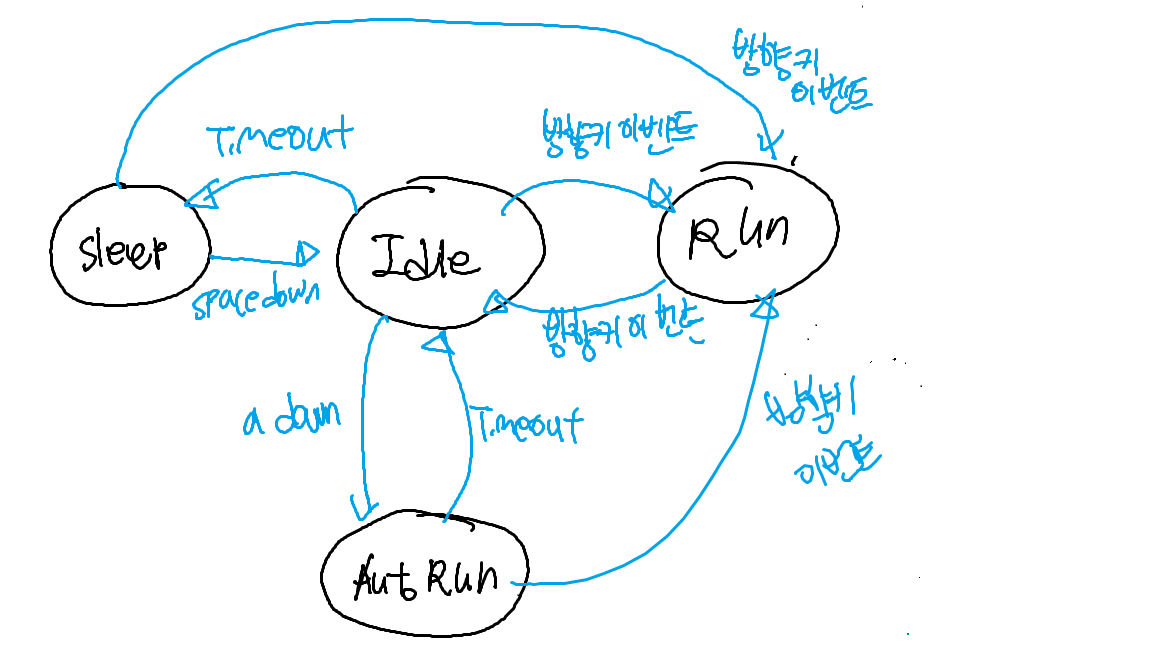 방향키
이벤트
Timeout
방향키 이벤트
Sleep
Idle
Run
space down
방향키 이벤트
a down
Timeout
방향키
이벤트
Aut Run